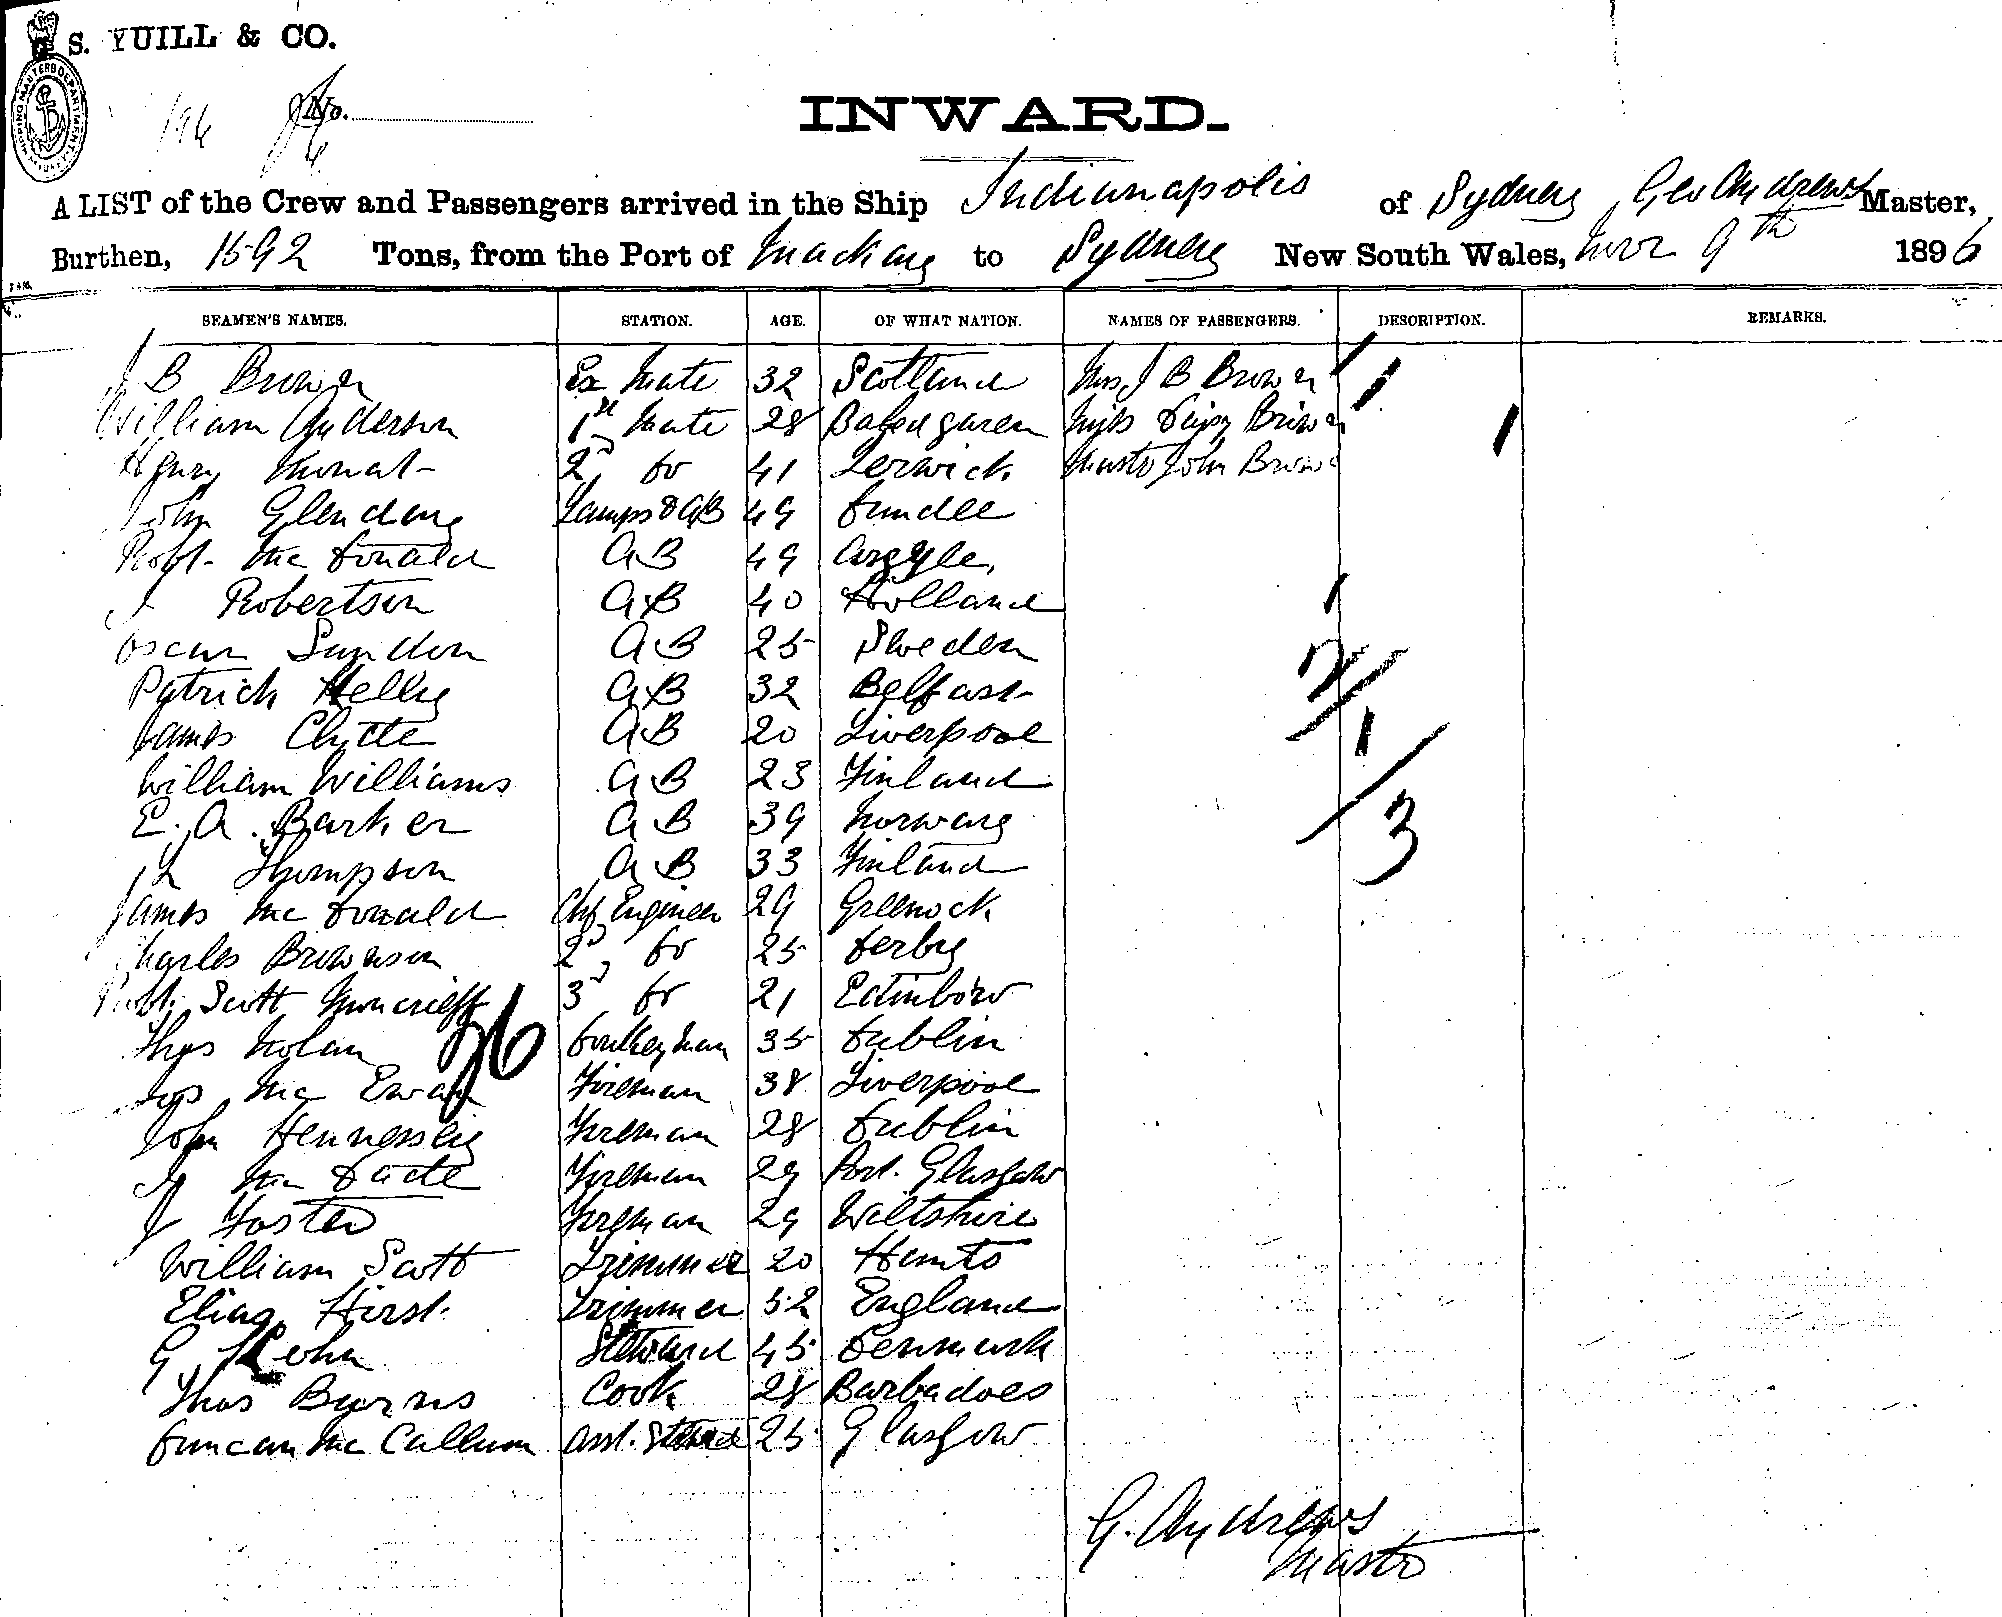 S. YUILL & CO.
No.
INWARD.
A LIST of the Crew and Passengers arrived in the Ship Indianapolis of Sydney Geo Andrews Master,
Burthen, 1592 Tons, from the Port of Mackay to Sydney New South Wales, Novr 9th 1896
SEAMEN'S NAMES. STATION. AGE. OF WHAT NATION. NAMES OF PASSENGERS. DESCRIPTION. REMARKS.
J B Brown Ex Mate 32 Scotland Mrs J B Brown
William Anderson 1st Mate 28 Miss Daisy Brown
Henry Mouat 2nd Do 41 Lerwick Mastr John Brown
John Glendang Lamps & AB 49 Dundee
Robt. McDonald AB 49 Argyle,
J Robertson AB 40 Holland
Oscar Sundon AB 25 Sweden
Patrick Kelly AB 32 Belfast
James Clytte AB 20 Liverpool
William Williams AB 23 Finland
E. A. Barker AB 39 Norway
Thompson AB 33 Finland
James McDonald Chf Engineer 29 Greenock
Charles Brownson 2nd Do 25 Derby
Robt. Scott Moncrieff 3rd Do 21 Edinboro
Thos Nolan Donkeyman 35 Dublin
Jas McEwan Fireman 38 Liverpool
John Hennessey Fireman 28 Dublin
J McDade Fireman 29 Port Glasgow
J Foster Fireman 29 Wiltshire
William Scott Trimmer 20 Hants
Elias Hirst. Trimmer 52 England
G. Kohn Steward 45 Denmark
Thos Burns Cook 28 Barbadoes
Duncan McCallum Asst. Steward 25 Glasgow
26
2/1
3
G. Andrews
Master